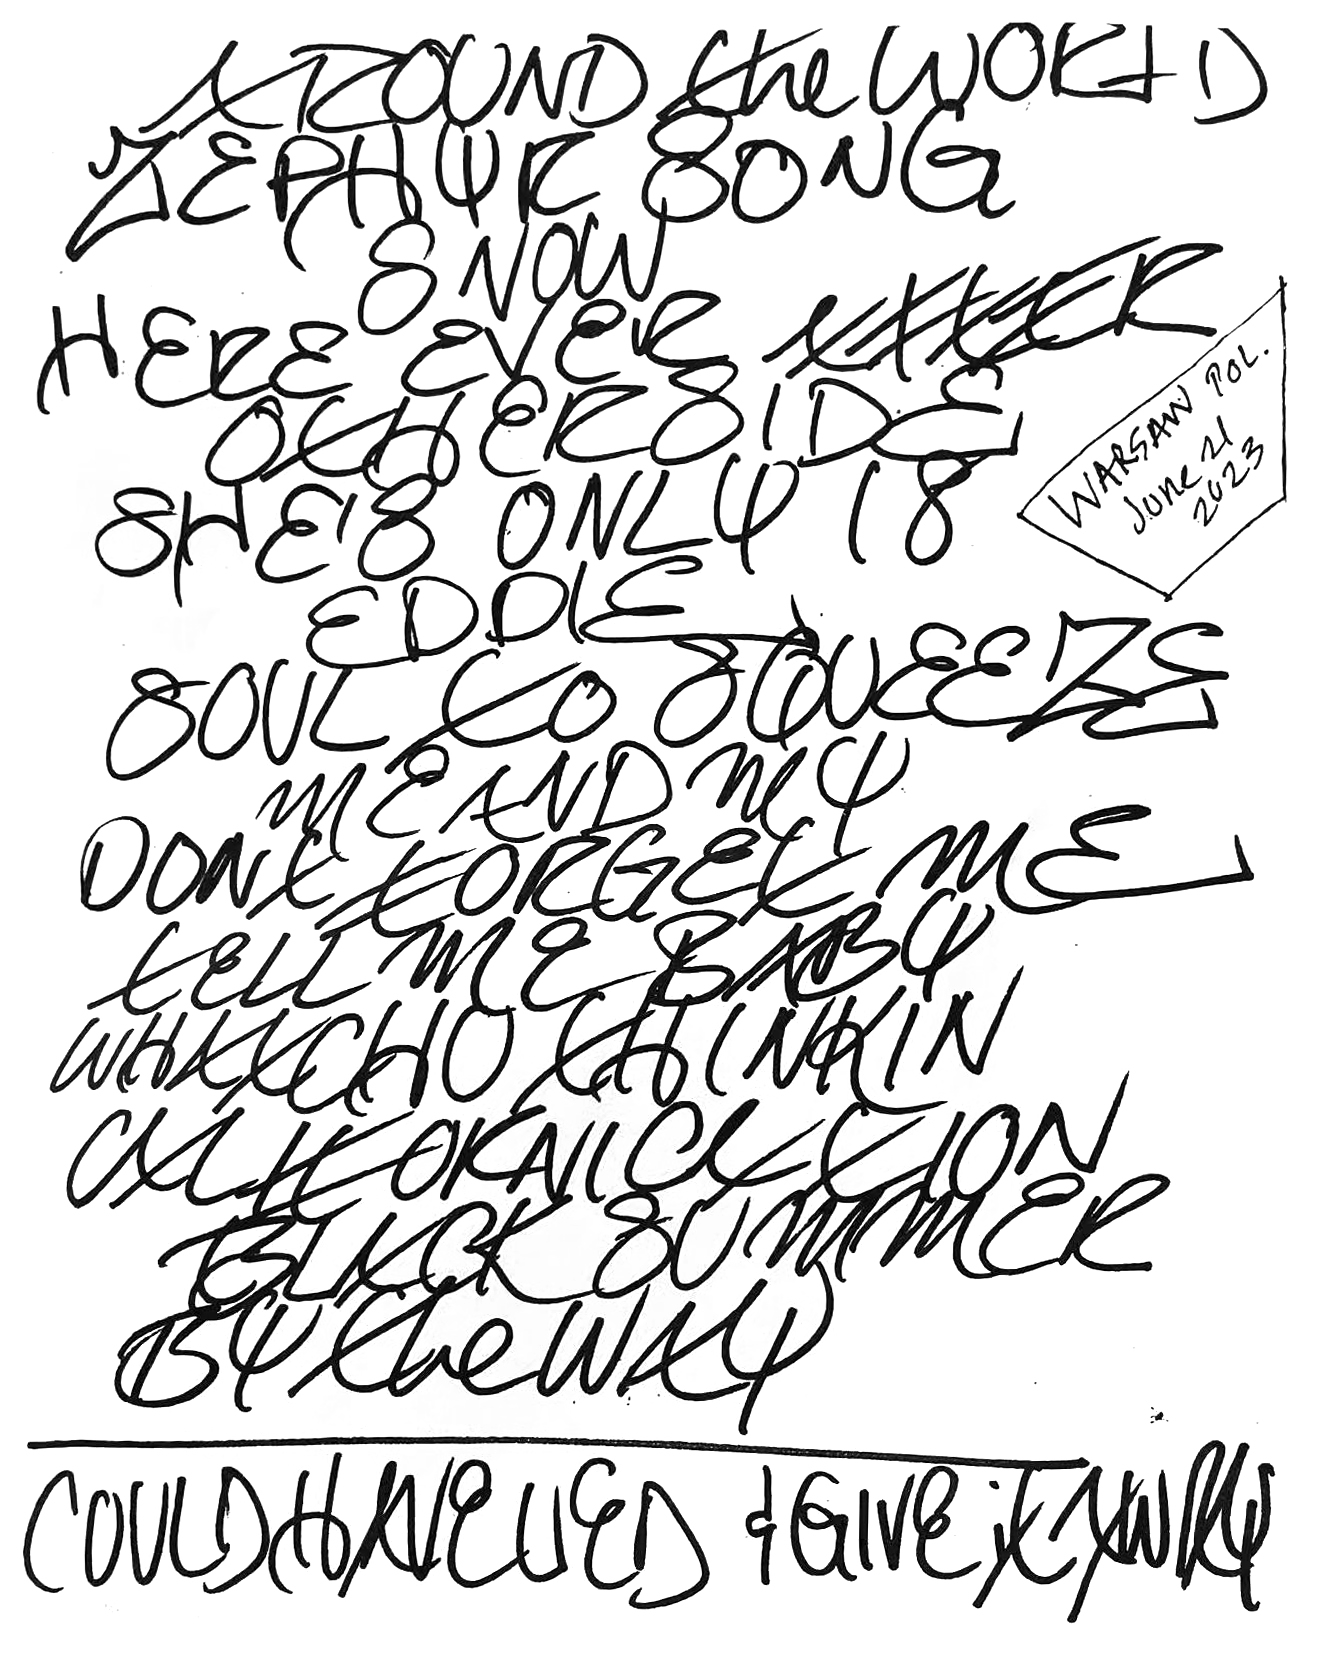 AROUND the WORLD
ZEPHYR SONG
SNOW
HERE EVER AFTER
OTHERSIDE
SHE'S ONLY 18
EDDIE
SOUL TO SQUEEZE
ME AND MY
DONT FORGET ME
tELL ME BABY
WHATCHO THINKIN
CALIFORNICATION
BLACK SUMMER
BY the WAY
COULD HAVE LIED & GIVE it AWAY
WARSAW POL.
June 21
2023